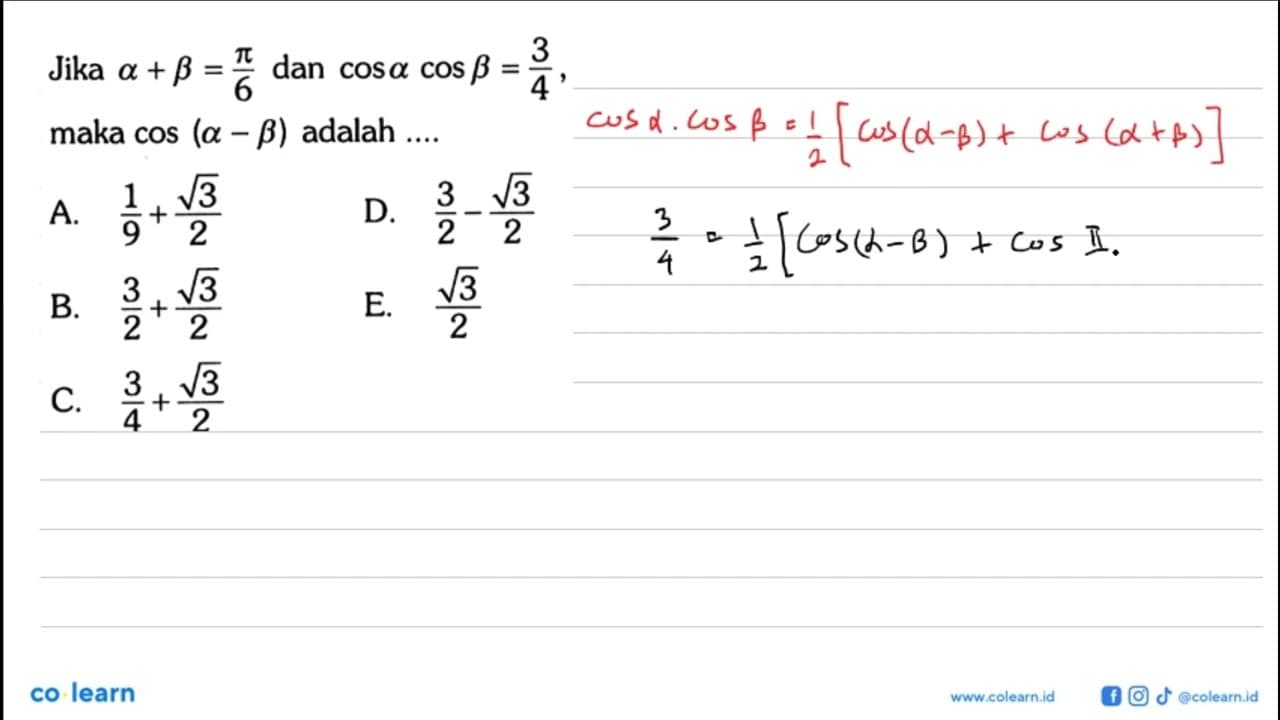 Jika α + β = π/6 dan cos α cos β = 3/4,
maka cos (α – β) adalah ....
A. 1/9 + √3/2
B. 3/2 + √3/2
C. 3/4 + √3/2
D. 3/2 – √3/2
E. √3/2
cos α . cos β = 1/2 [cos(α-β) + cos (α+β)]
3/4 = 1/2 [cos(α-β) + cos π.
co learn
www.colearn.id
@colearn.id